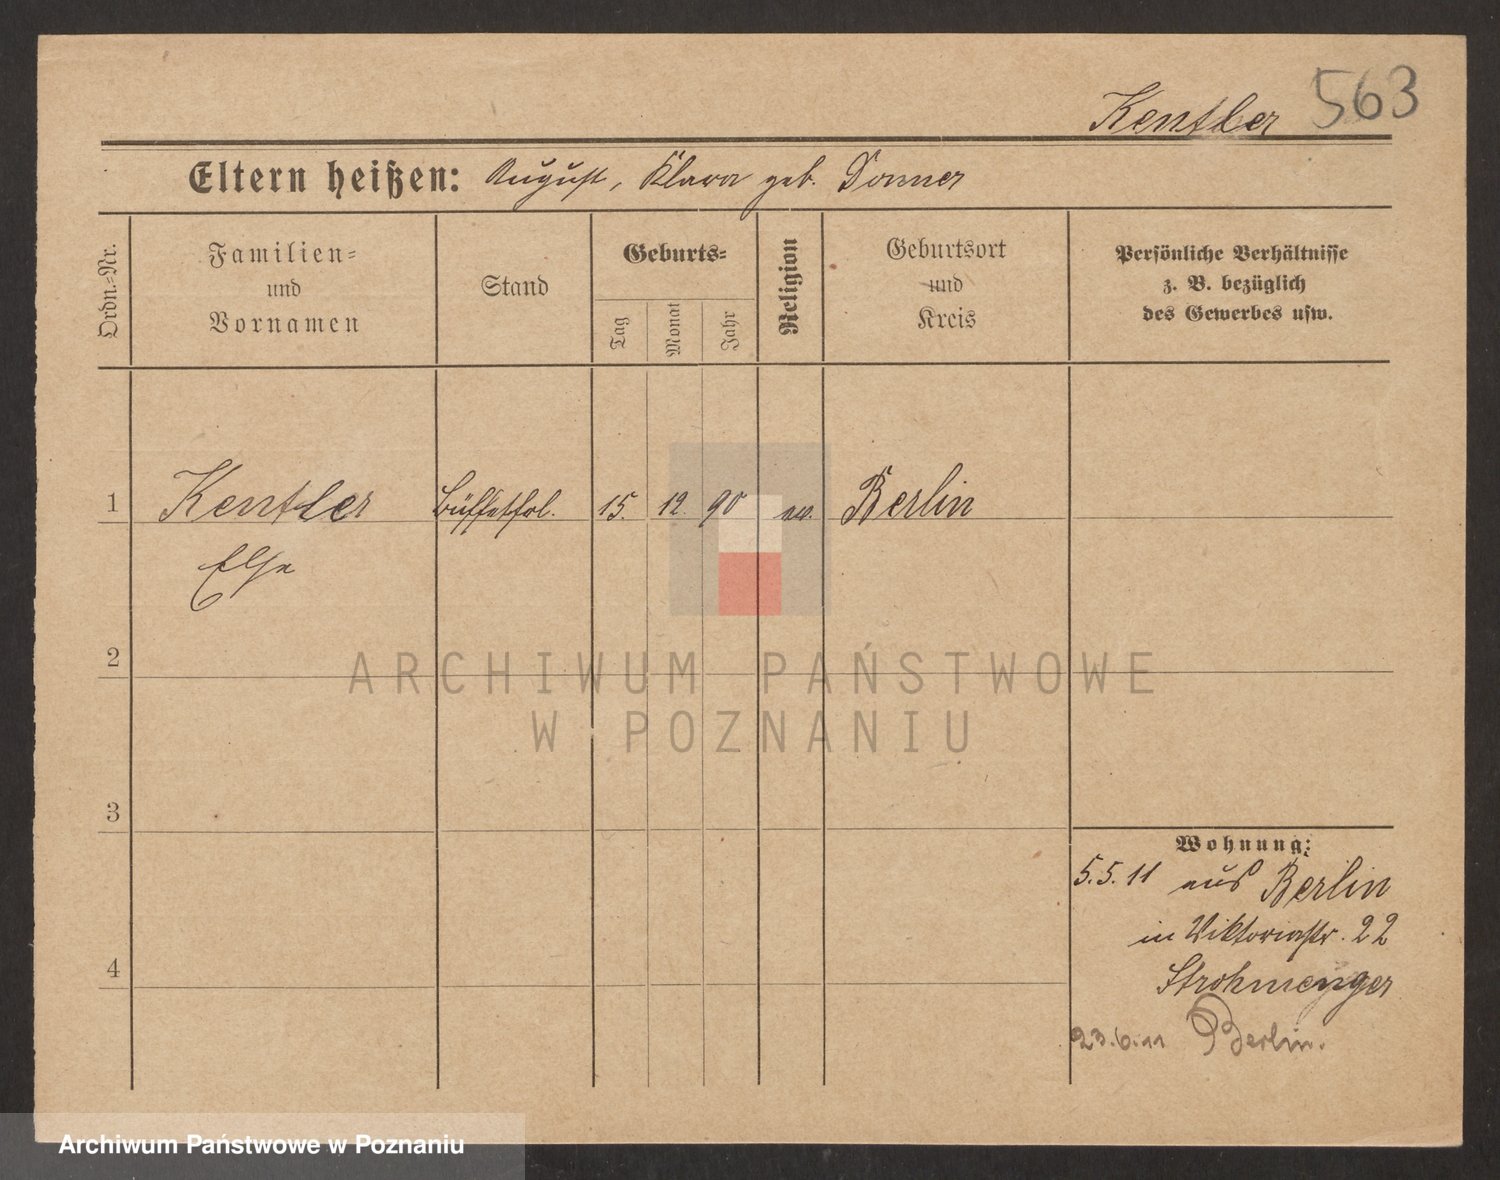 Kentler 563
Eltern heißen: August, Klara geb. Donner
Ordn.-Nr.
Familien-
und
Vornamen
Stand
Geburts-
Tag
Monat
Jahr
Religion
Geburtsort
und
Kreis
Persönliche Verhältnisse
z. B. bezüglich
des Gewerbes usw.
1 Kentler Büffetfrl. 15. 12. 90 ev. Berlin
Else
2
3
4
Wohnung:
5.5.11 aus Berlin
in Viktoriastr. 22
Strohmenger
23.6.11 Berlin.
ARCHIWUM PAŃSTWOWE
W POZNANIU
Archiwum Państwowe w Poznaniu